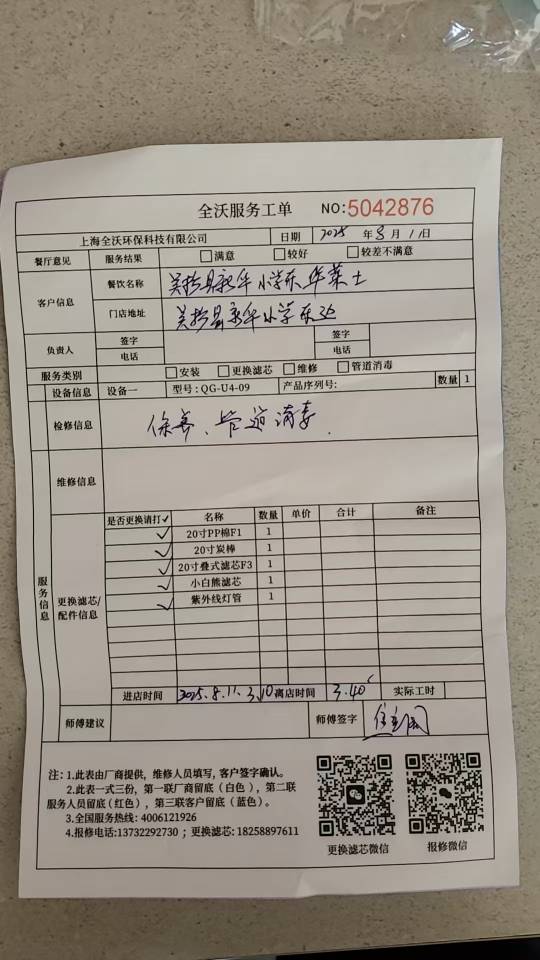 全沃服务工单 NO:5042876
上海全沃环保科技有限公司 日期 2025 年 8 月 11 日
餐厅意见 服务结果 满意 较好 较差不满意
客户信息 餐饮名称 小学东 华莱士
门店地址 小学东
负责人 签字 签字
电话 电话
服务类别 安装 更换滤芯 维修 管道消毒
设备信息 设备一 型号:QG-U4-09 产品序列号: 数量 1
检修信息 保养、管道消毒.
维修信息
服务信息
更换滤芯/配件信息
是否更换请打✓ 名称 数量 单价 合计 备注
✓ 20寸PP棉F1 1
✓ 20寸炭棒 1
✓ 20寸叠式滤芯F3 1
✓ 小白熊滤芯 1
✓ 紫外线灯管 1
进店时间 2025.8.11. 3.10 离店时间 3.40 实际工时
师傅建议 师傅签字
注: 1.此表由厂商提供, 维修人员填写, 客户签字确认。
2.此表一式三份, 第一联厂商留底 (白色), 第二联
服务人员留底(红色), 第三联客户留底 (蓝色)。
3.全国服务热线: 4006121926
4.报修电话:13732292730 ; 更换滤芯: 18258897611
更换滤芯微信 报修微信